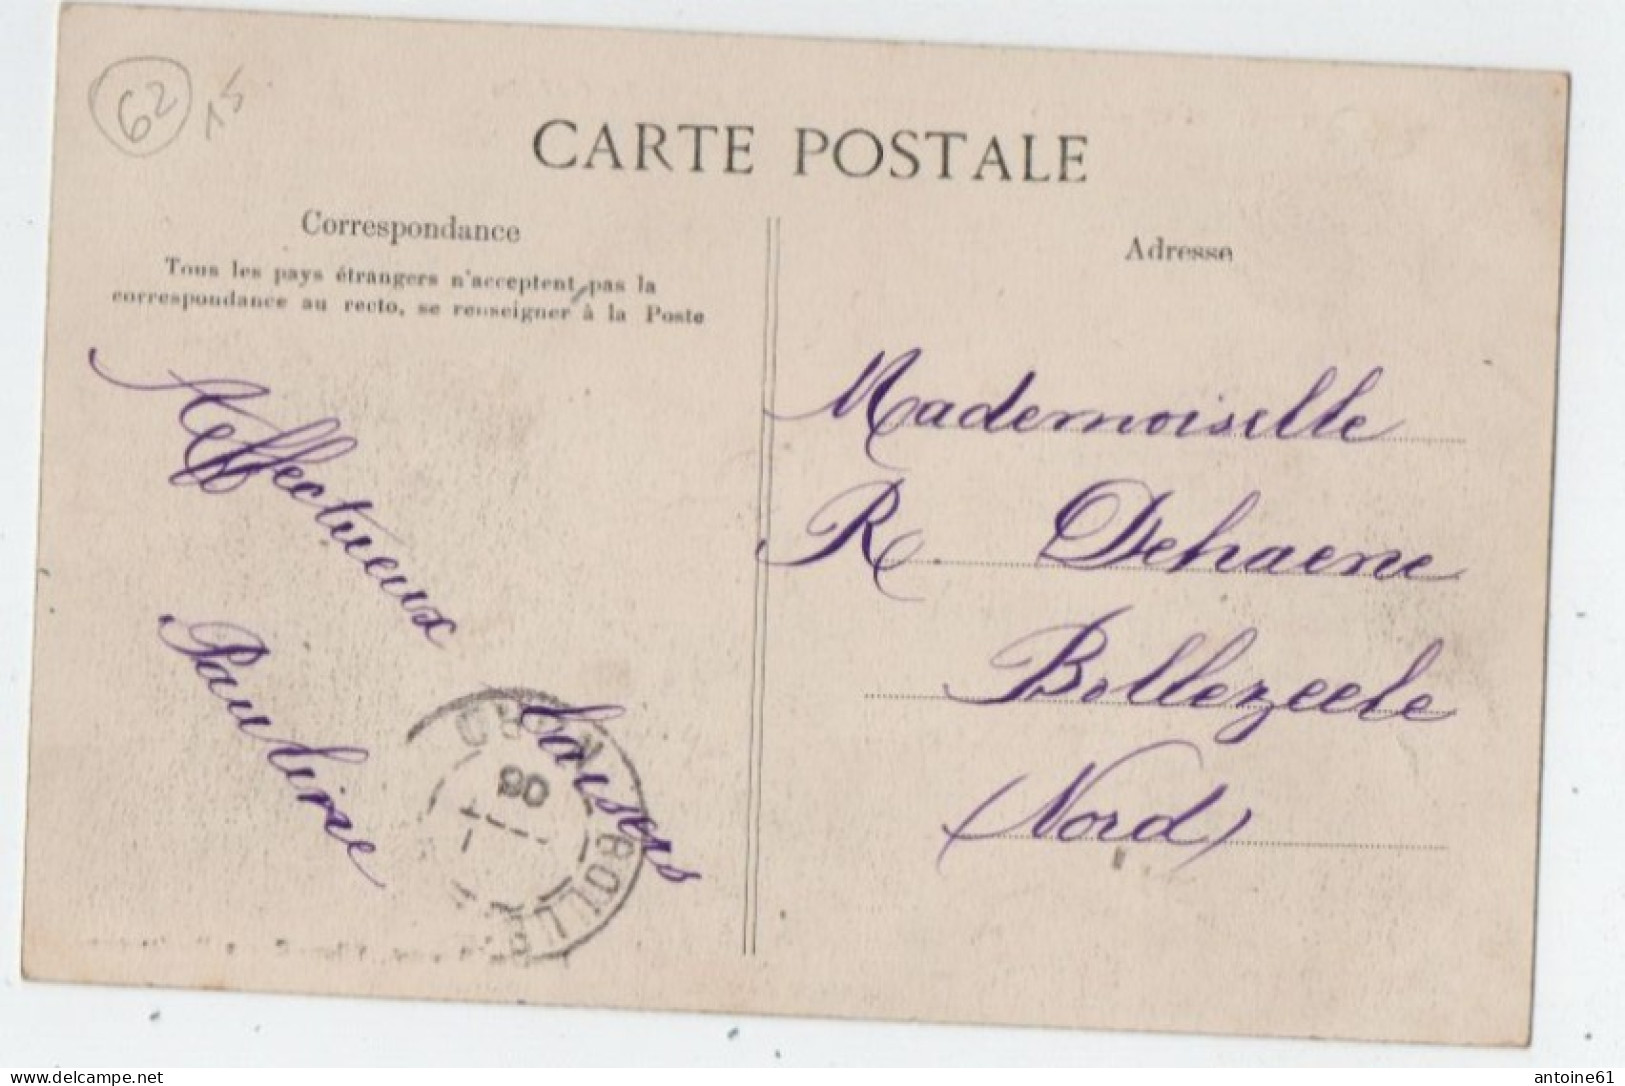 62
15
CARTE POSTALE
Correspondance
Tous les pays étrangers n'acceptent pas la
correspondance au recto, se renseigner à la Poste
Affectueux
baisers
Pauline
Adresse
Mademoiselle
R. Dehaene
Bollezeele
(Nord)
08
delcampe.net
antoine61